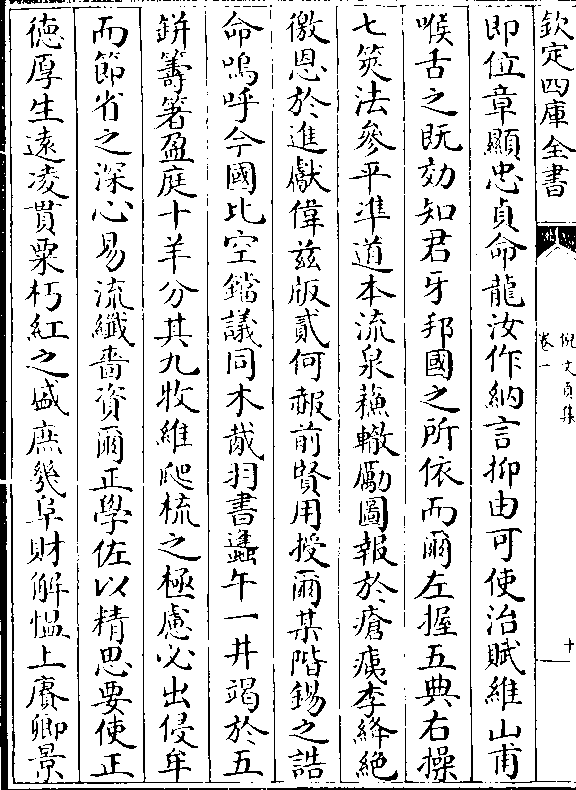 欽定四庫全書
倪文貞集
卷一
十
即位章顯忠貞命龍汝作納言抑由可使治賦維山甫
喉舌之既効知君牙邦國之所依而爾左握五典右操
七筴法參平準道本流泉蘓轍勵圖報於瘡痍李絳絶
徼恩於進獻偉兹版貳何赧前賢用授爾某階錫之誥
命嗚呼今國比空鐺議同木哉羽書蠭午一井竭於五
缾籌箸盈庭十羊分其九牧維爬梳之極慮必出侵牟
而節省之深心易流纖嗇資爾正學佐以精思要使正
徳厚生遠凌貫粟朽紅之盛庶幾阜財解愠上賡卿景